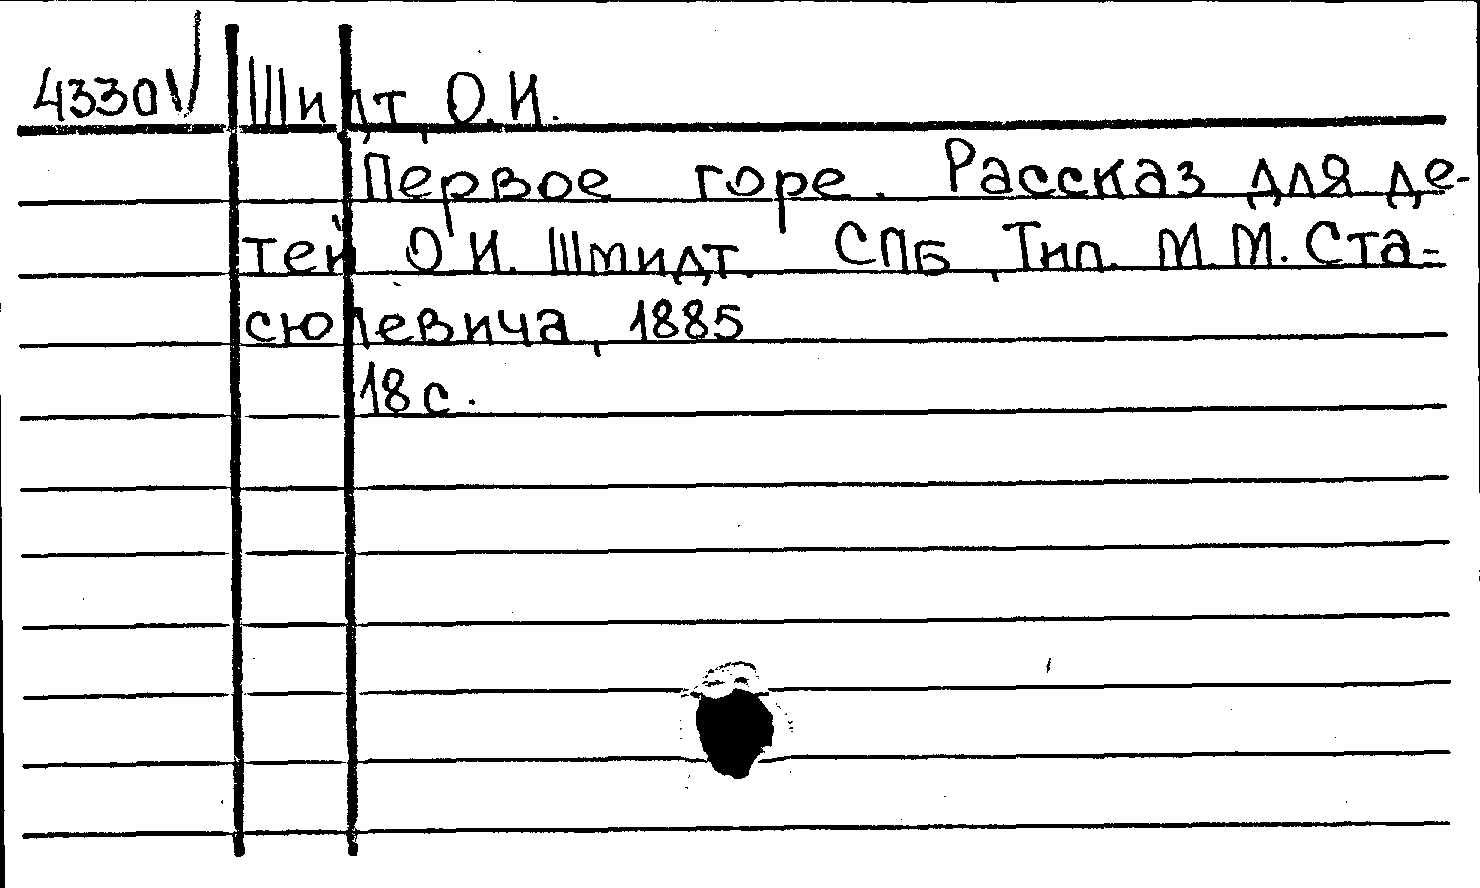 4330V Шидт, О.И.
Первое горе. Рассказ для де-
тей О.И. Шмидт. СПБ, Тип. М.М. Ста-
сюлевича, 1885
18 с.